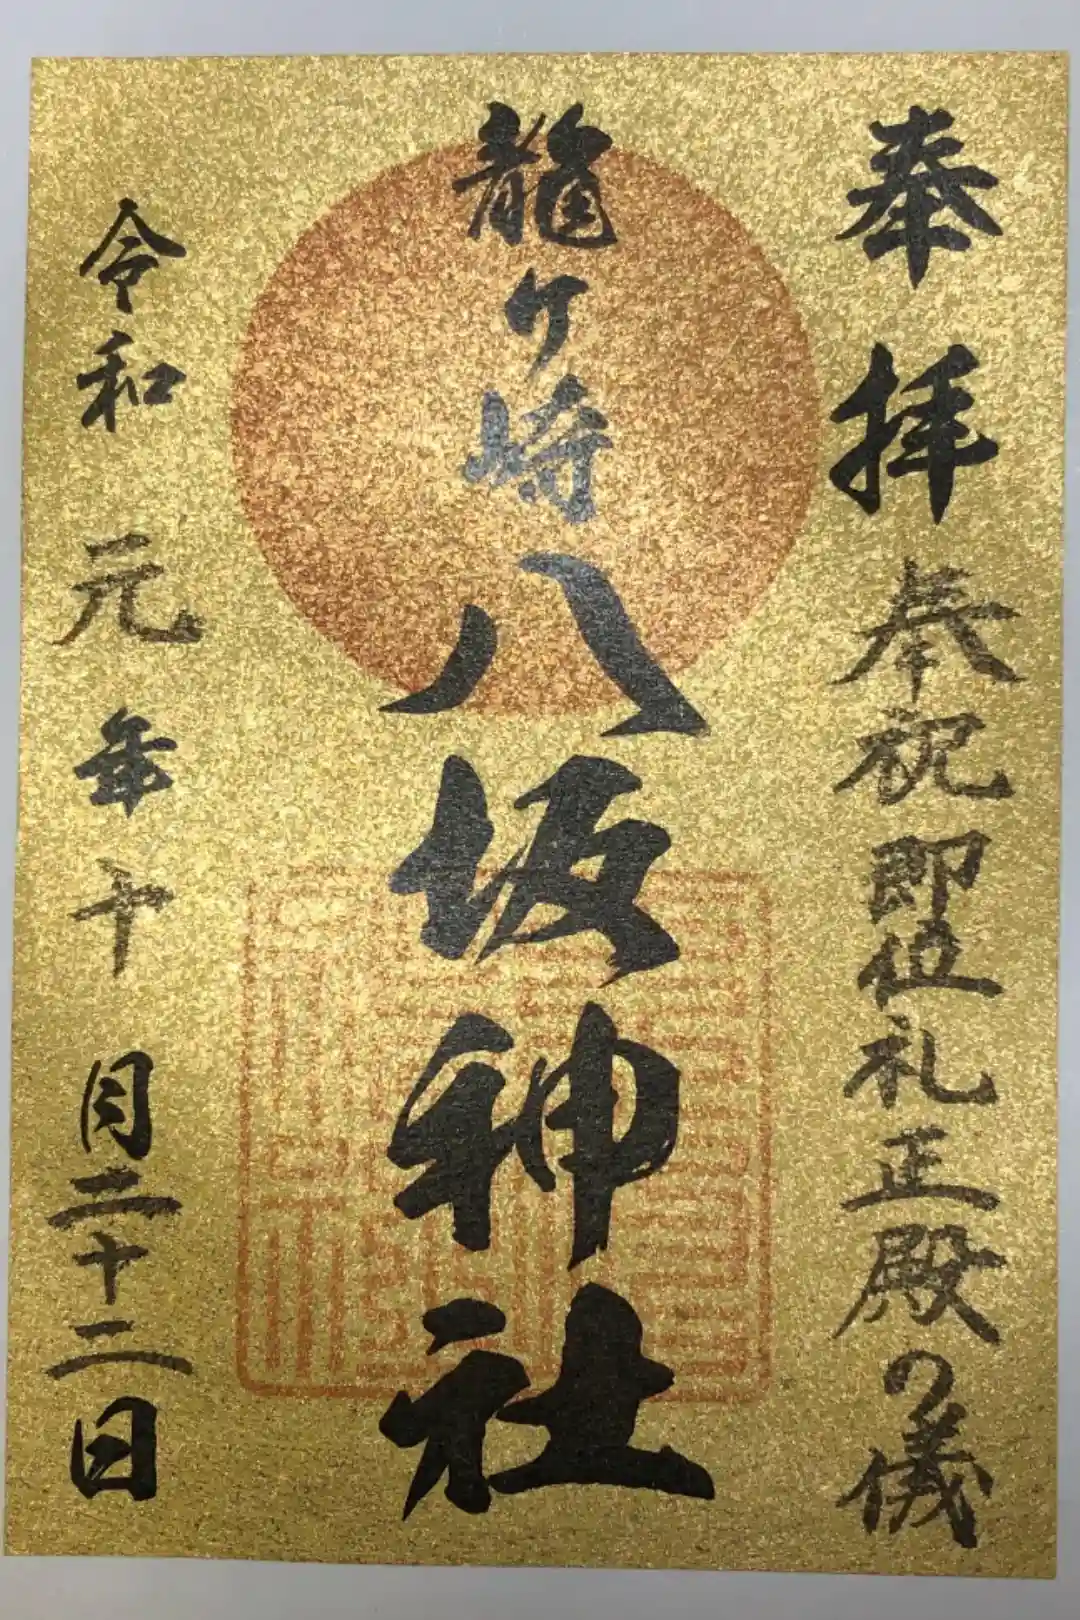 奉拝 奉祝即位礼正殿の儀
龍ケ崎八坂神社
令和元年十月二十二日